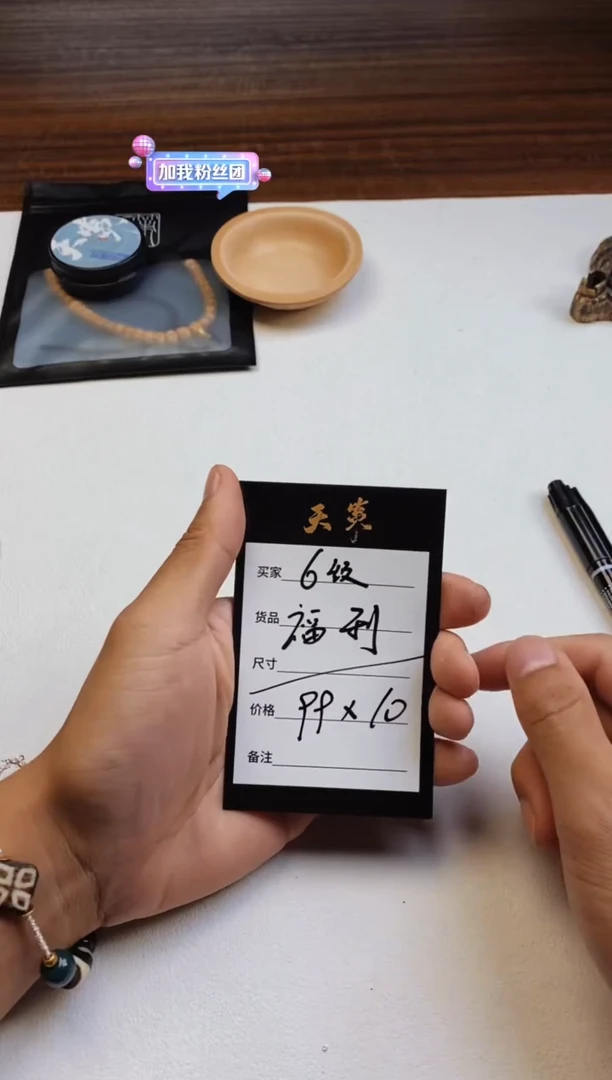 加我粉丝团
天炎
买家 6级
货品 福利
尺寸
价格 99×10
备注